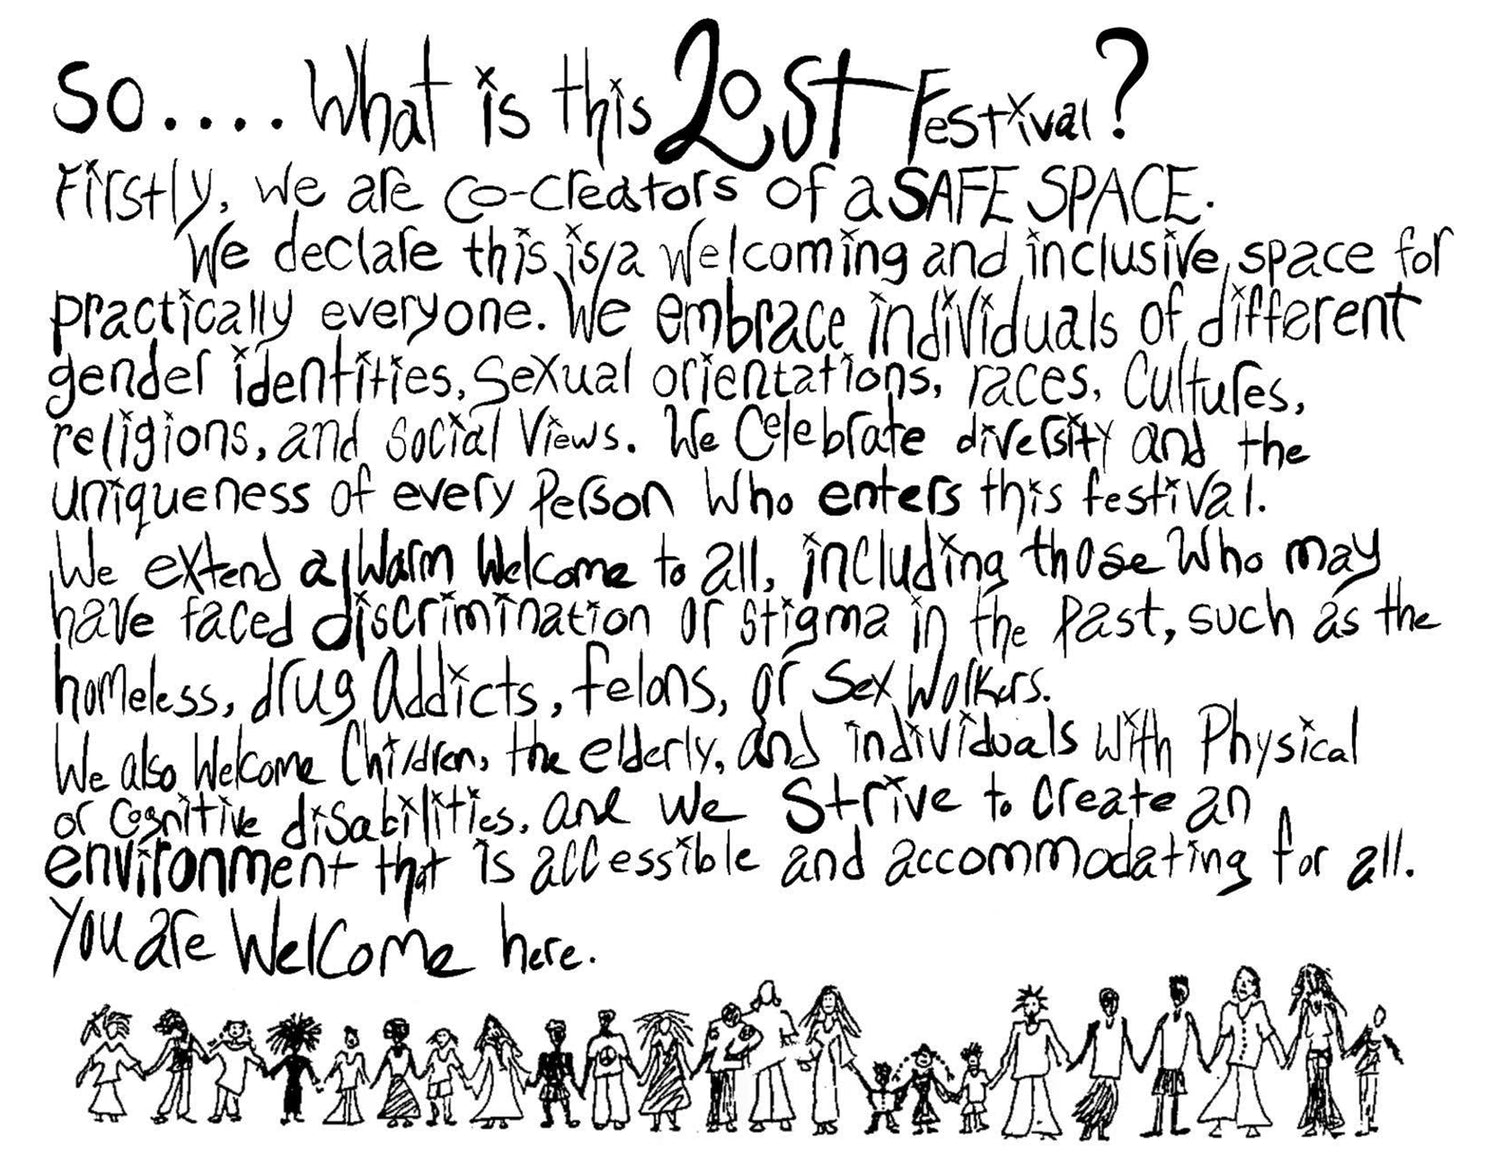 So.... What is this Lost Festival?
Firstly, we are co-creators of a SAFE SPACE.
We declare this is a welcoming and inclusive space for
practically everyone. We embrace individuals of different
gender identities, sexual orientations, races, cultures,
religions, and social views. We celebrate diversity and the
uniqueness of every person who enters this festival.
We extend a warm welcome to all, including those who may
have faced discrimination or stigma in the past, such as the
homeless, drug addicts, felons, or sex workers.
We also welcome children, the elderly, and individuals with physical
or cognitive disabilities, and we strive to create an
environment that is accessible and accommodating for all.
You are welcome here.